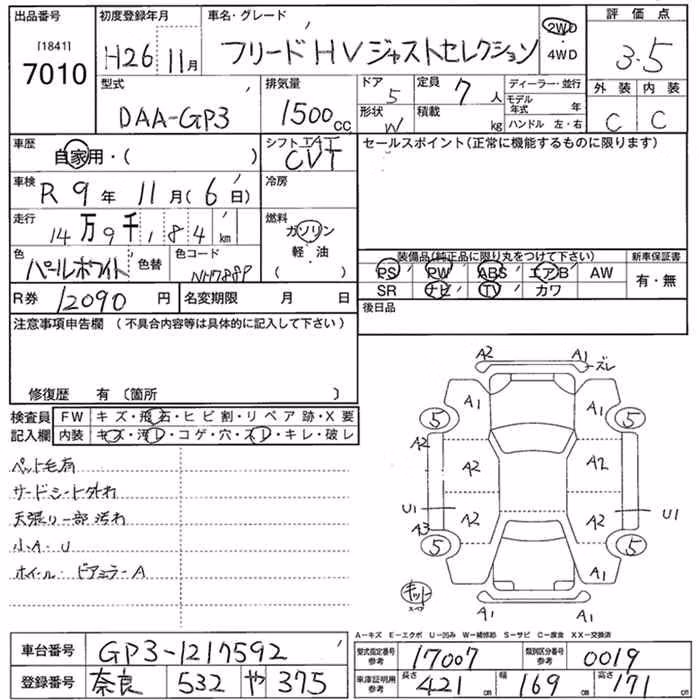 出品番号 初度登録年月 車名・グレード 評価点
[1841] 7010 H26 11月 フリードHVジャストセレクション 2WD 4WD 3.5
型式 排気量 ドア 定員 ディーラー・並行 外装 内装
DAA-GP3 1500cc 5 7人 モデル年式 年
形状 W 積載 kg ハンドル 左・右 C C
車歴 自家用・( ) シフト IAT CVT セールスポイント(正常に機能するものに限ります)
車検 R9年11月(6日) 冷房
走行 14万9千184km 燃料 ガソリン 軽・油 ( )
色 パールホワイト 色替 色コード NH788P
装備品(純正品に限り丸をつけて下さい) 新車保証書
PS PW ABS エアB AW 有・無
SR ナビ TV カワ
R券 12090円 名変期限 月 日 後日品
注意事項申告欄 (不具合内容等は具体的に記入して下さい)
修復歴 有 〔箇所 〕
検査員 FW キズ・飛石・ヒビ割・リペア跡・X要
記入欄 内装 キズ・汚レ・コゲ・穴・スレ・キレ・破レ
ペット毛有
サードシート外れ
天張り一部汚れ
小A.U
ホイール・ドアミラーA
A2 A1 ーズレ
A1 A1
5 5
A2 A2 A2
U1 A2 A2 U1
A3
5 5
A1 A1
キット スペア
A1 A1
A-キズ E-エクボ U-凹み W-補修跡 S-サビ C-腐食 XX-交換済
車台番号 GP3-1217592 型式指定番号 参考 17007 類別区分番号 参考 0019
登録番号 奈良 532 や 375 車庫証明用 参考 長さ 421cm 幅 169cm 高さ 171cm